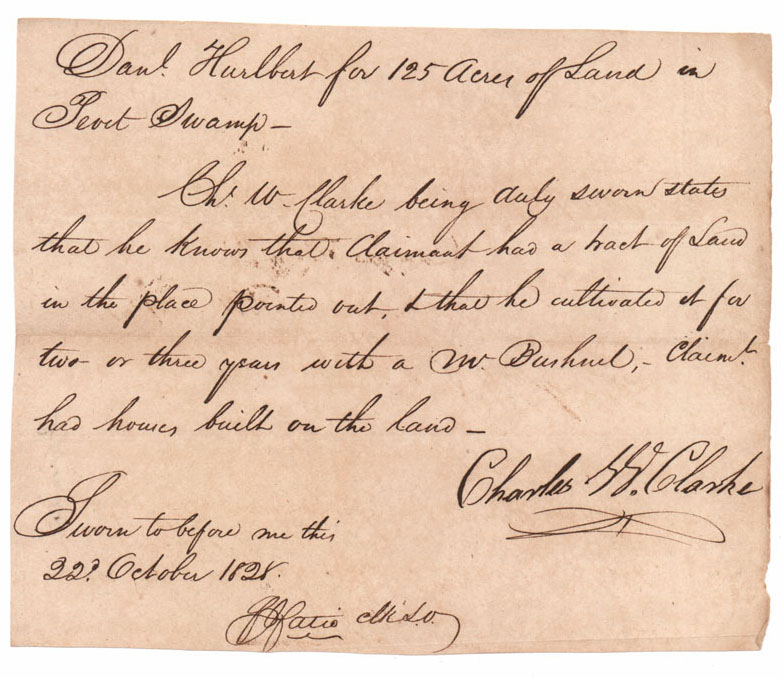 Danl. Hurlbert for 125 Acres of Land in
Pevet Swamp —
Chs. W. Clarke being duly sworn states
that he knows that Claimant had a tract of Land
in the place pointed out, & that he cultivated it for
two or three years with a Mr. Bushnel, — Claimt.
had houses built on the land —
Charles W. Clarke
Sworn to before me this
22d. October 1828.